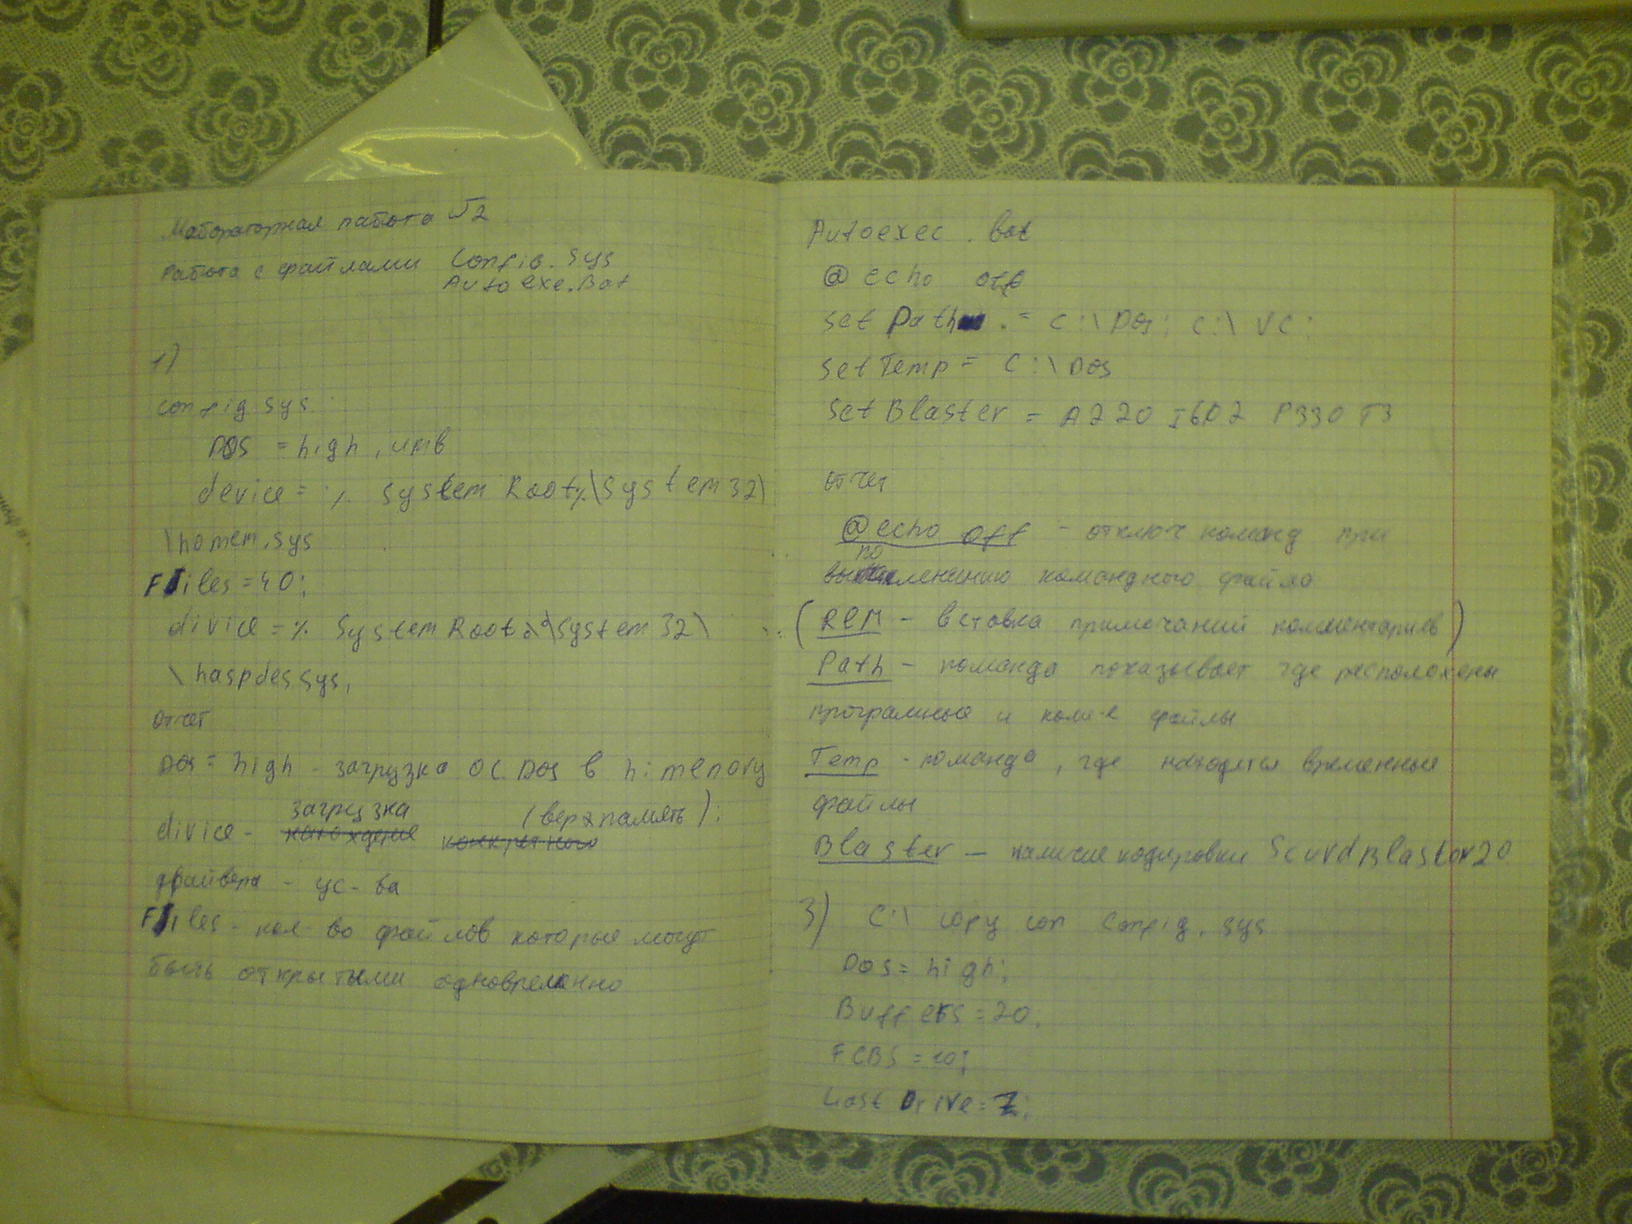 Лабораторная работа №2
Работа с файлами Config.Sys
Autoexe.Bat
1)
config.sys
DOS = high, umb
device = % System Root%\System32\
\homem.sys
Files = 40;
divice = % System Root%\System32\
\haspdes sys,
отчет
DOS = high - загрузка ОС DOS в himemory
загрузка (верх память);
divice -
драйвера - ус-ва
Files - кол-во файлов которые могут
быть открытыми одновременно
Autoexec.bat
@echo off
set Path = C:\Dos; C:\VC;
set Temp = C:\DOS
set Blaster = A220 I6D2 P330 T3
отчет
@echo off - отключ команд при
по
командного файла
(REM - вставка примечаний комментариев)
Path - команда показывает где расположены
програмные и файлы
Temp - команда, где находятся временные
файлы
Blaster - наличие кодировки ScurdBlaster20
3) C:\ copy con Config.sys
DOS = high;
Buffers = 20;
FCBS = 10;
Last Drive = Z;